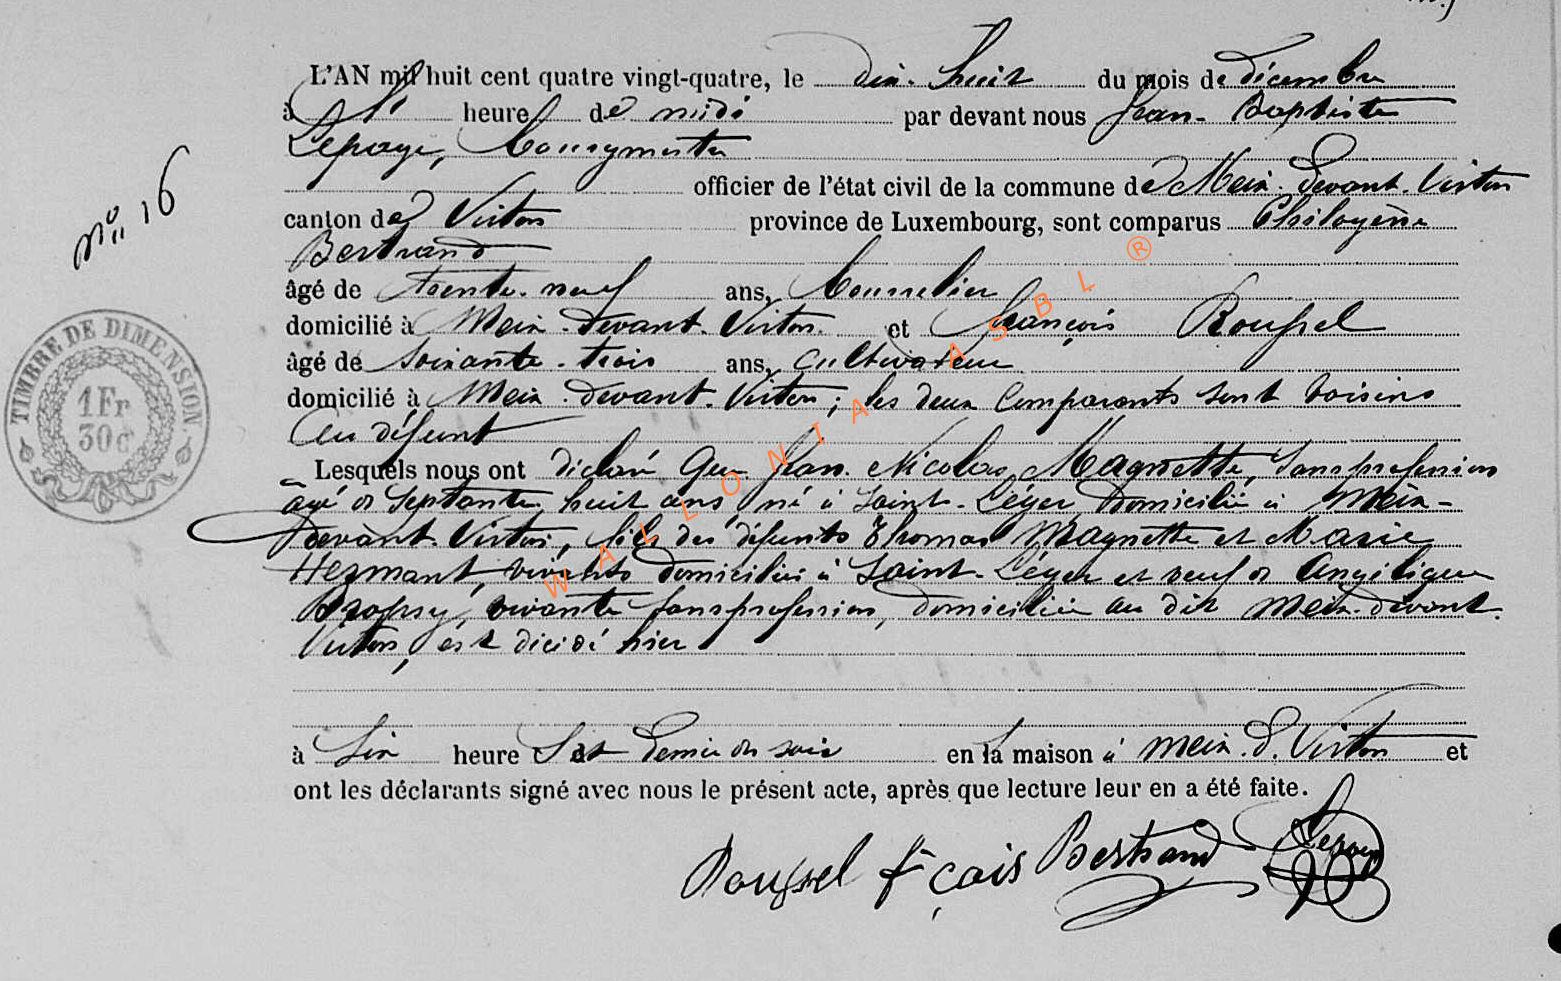 N° 16
L'AN mil huit cent quatre vingt-quatre, le dix-huit du mois de décembre
à heure de midi par devant nous Jean-Baptiste
Lepage, Bourgmestre
officier de l'état civil de la commune de Meix-Devant-Virton
canton de Virton province de Luxembourg, sont comparus Philogène
Bertrand
âgé de trente-neuf ans, Bourrelier
domicilié à Meix-Devant-Virton et François Roussel
âgé de soixante-trois ans, cultivateur
domicilié à Meix-Devant-Virton; les deux comparants sont voisins
au défunt
Lesquels nous ont déclaré que Jean Nicolas Magnette, sans profession
âgé de septante huit ans né à Saint-Léger, domicilié à Meix-
devant-Virton, fils des défunts Thomas Magnette et Marie
vivants domiciliés à Saint-Léger et veuf de Angélique
vivante sans profession, domiciliée au dit Meix-devant-
Virton, est décédé hier
à six heure s et demie du soir en la maison à Meix-d-Virton et
ont les déclarants signé avec nous le présent acte, après que lecture leur en a été faite.
Roussel fçois Bertrand Lepage
TIMBRE DE DIMENSION
1 Fr
30 c
WALLONIA ASBL ®